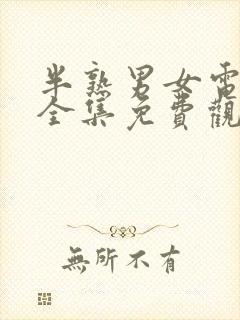 半熟男女電
全集免費觀
無所不有